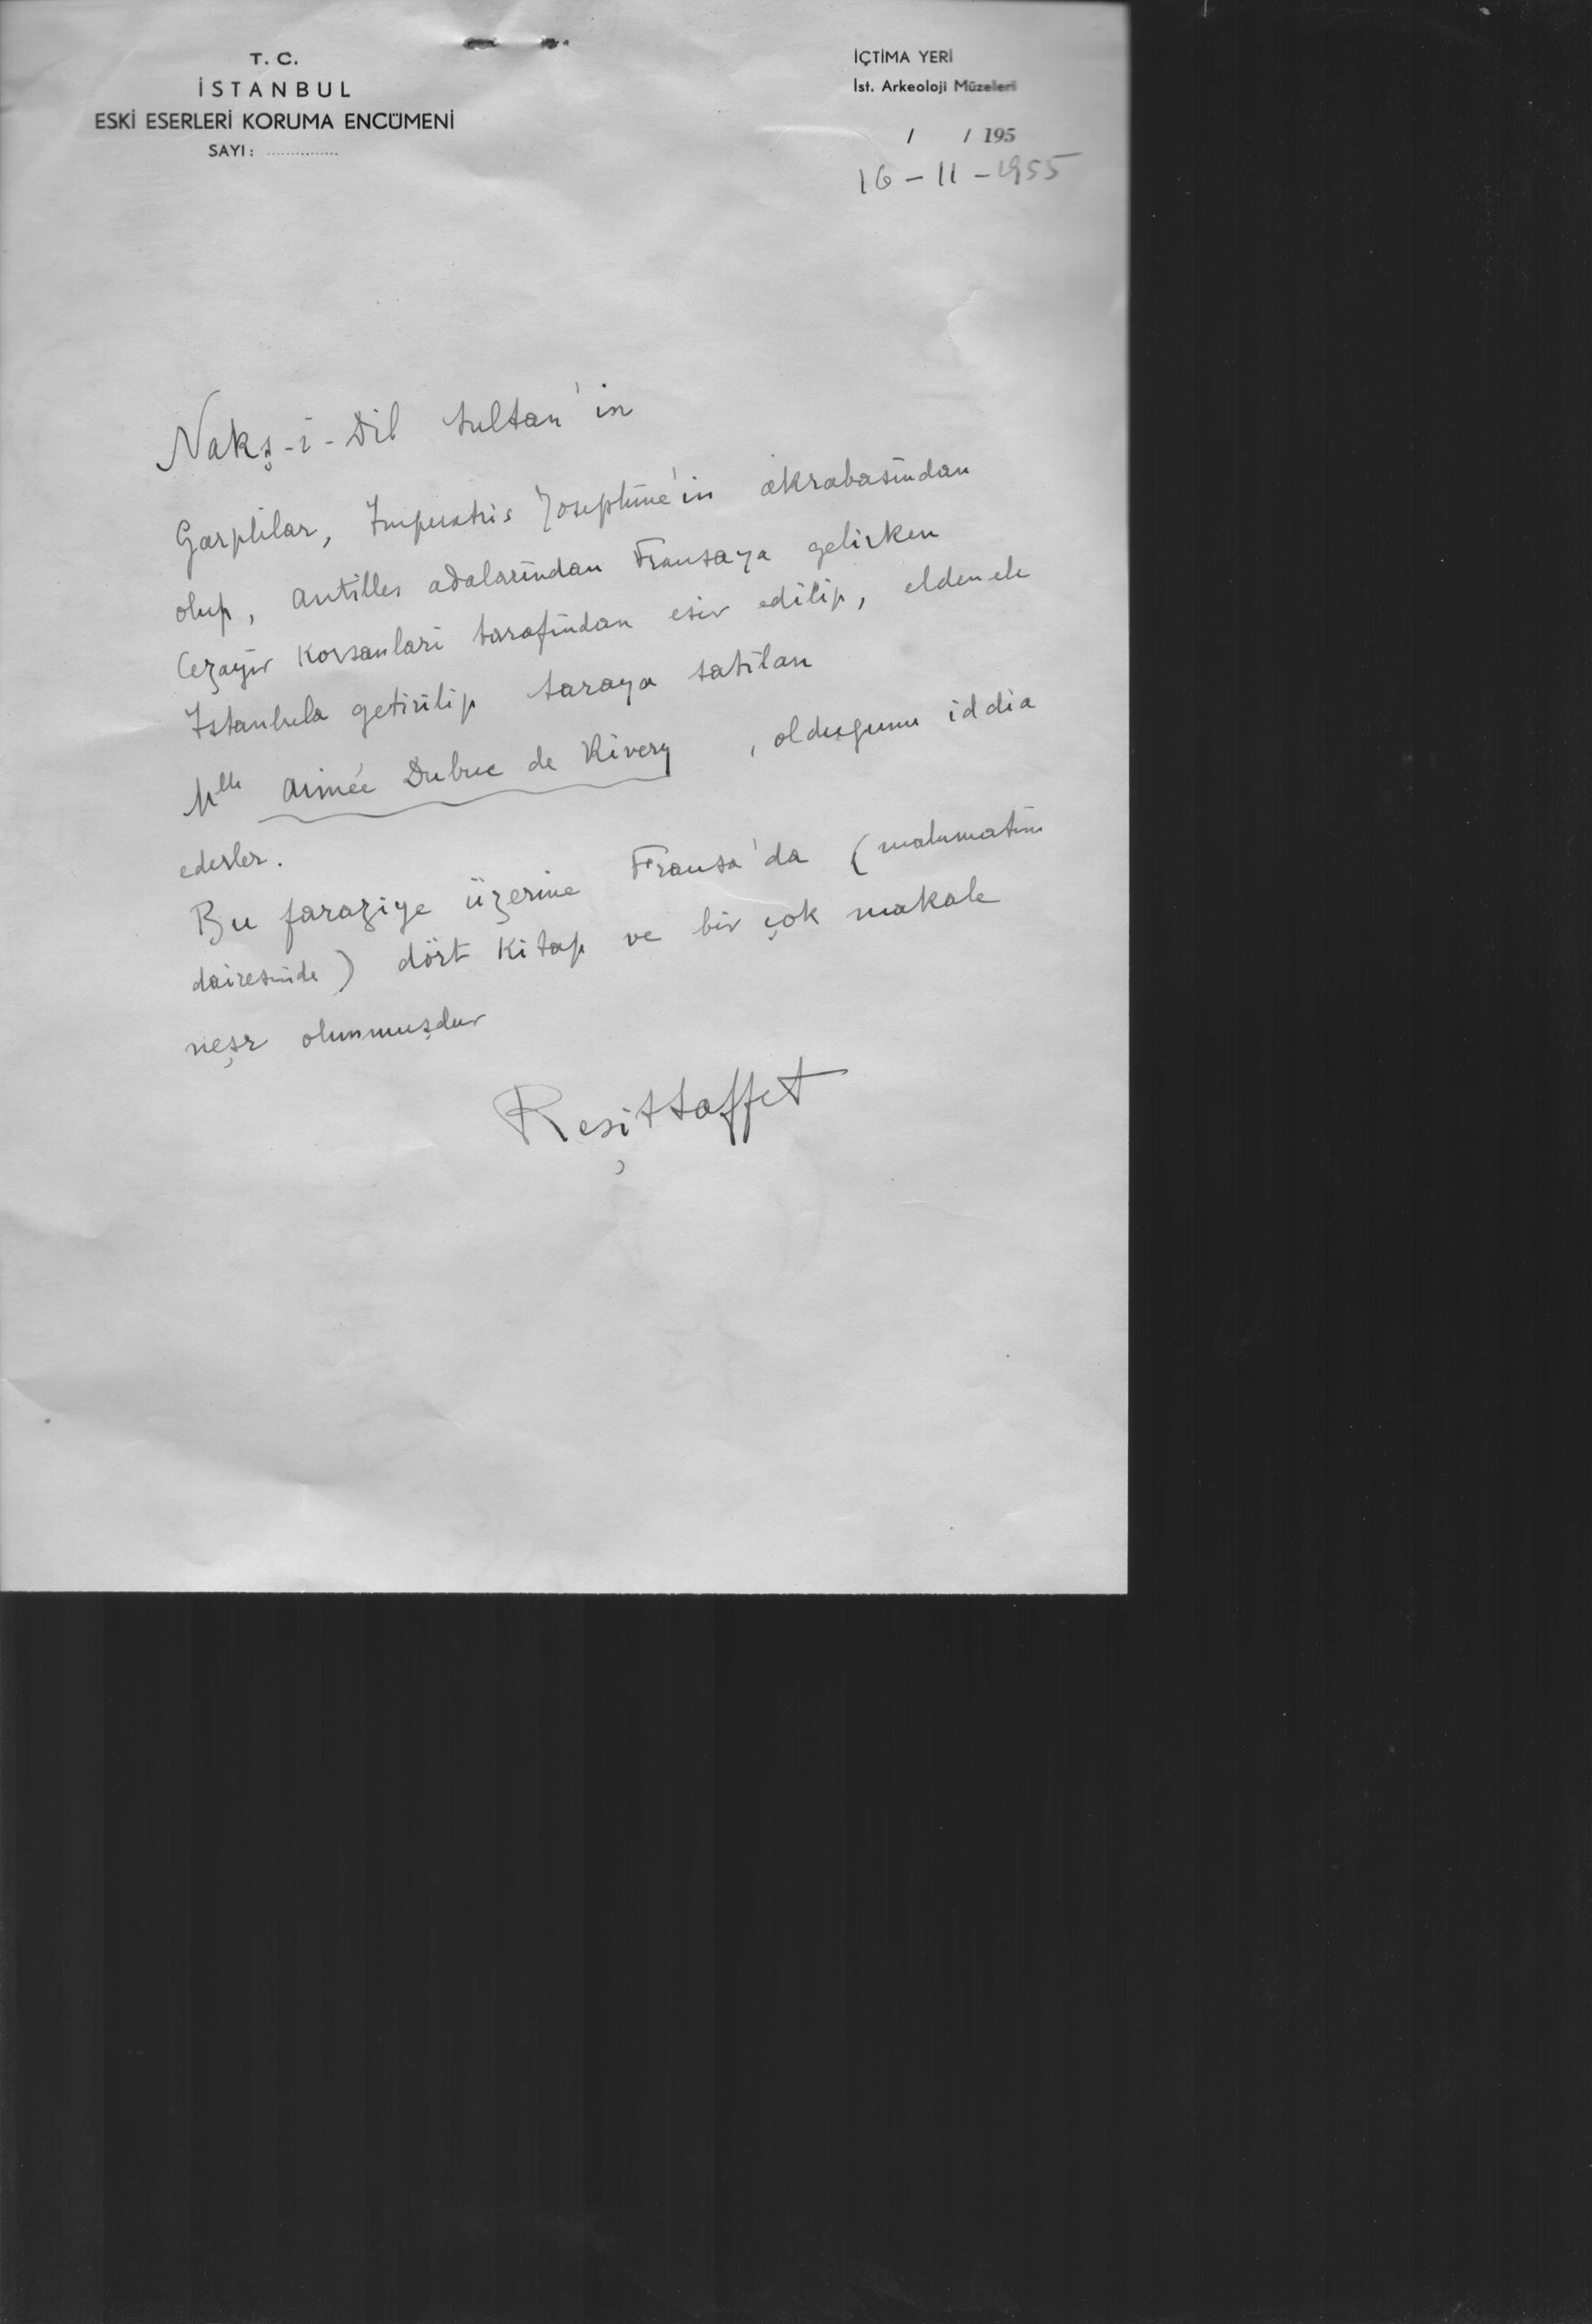 T. C.
İSTANBUL
ESKİ ESERLERİ KORUMA ENCÜMENİ
SAYI: ...............
İÇTİMA YERİ
İst. Arkeoloji Müzeleri
/ / 195
16 - 11 - 1955
Nakş-i-Dil Sultan'in
Garplilar, Imperatris Josephine'in akrabasindan
olup, Antilles adalarindan Fransaya gelirken
Cezayir Korsanlari tarafindan esir edilip, elden ele
Istanbula getirilip saraya satilan
Mlle Aimée Dubuc de Rivery , oldugunu iddia
ederler.
Bu faraziye üzerine Fransa'da (malumatim
dairesinde) dört Kitap ve bir çok makale
neşr olunmuşdur
Reşitsaffet